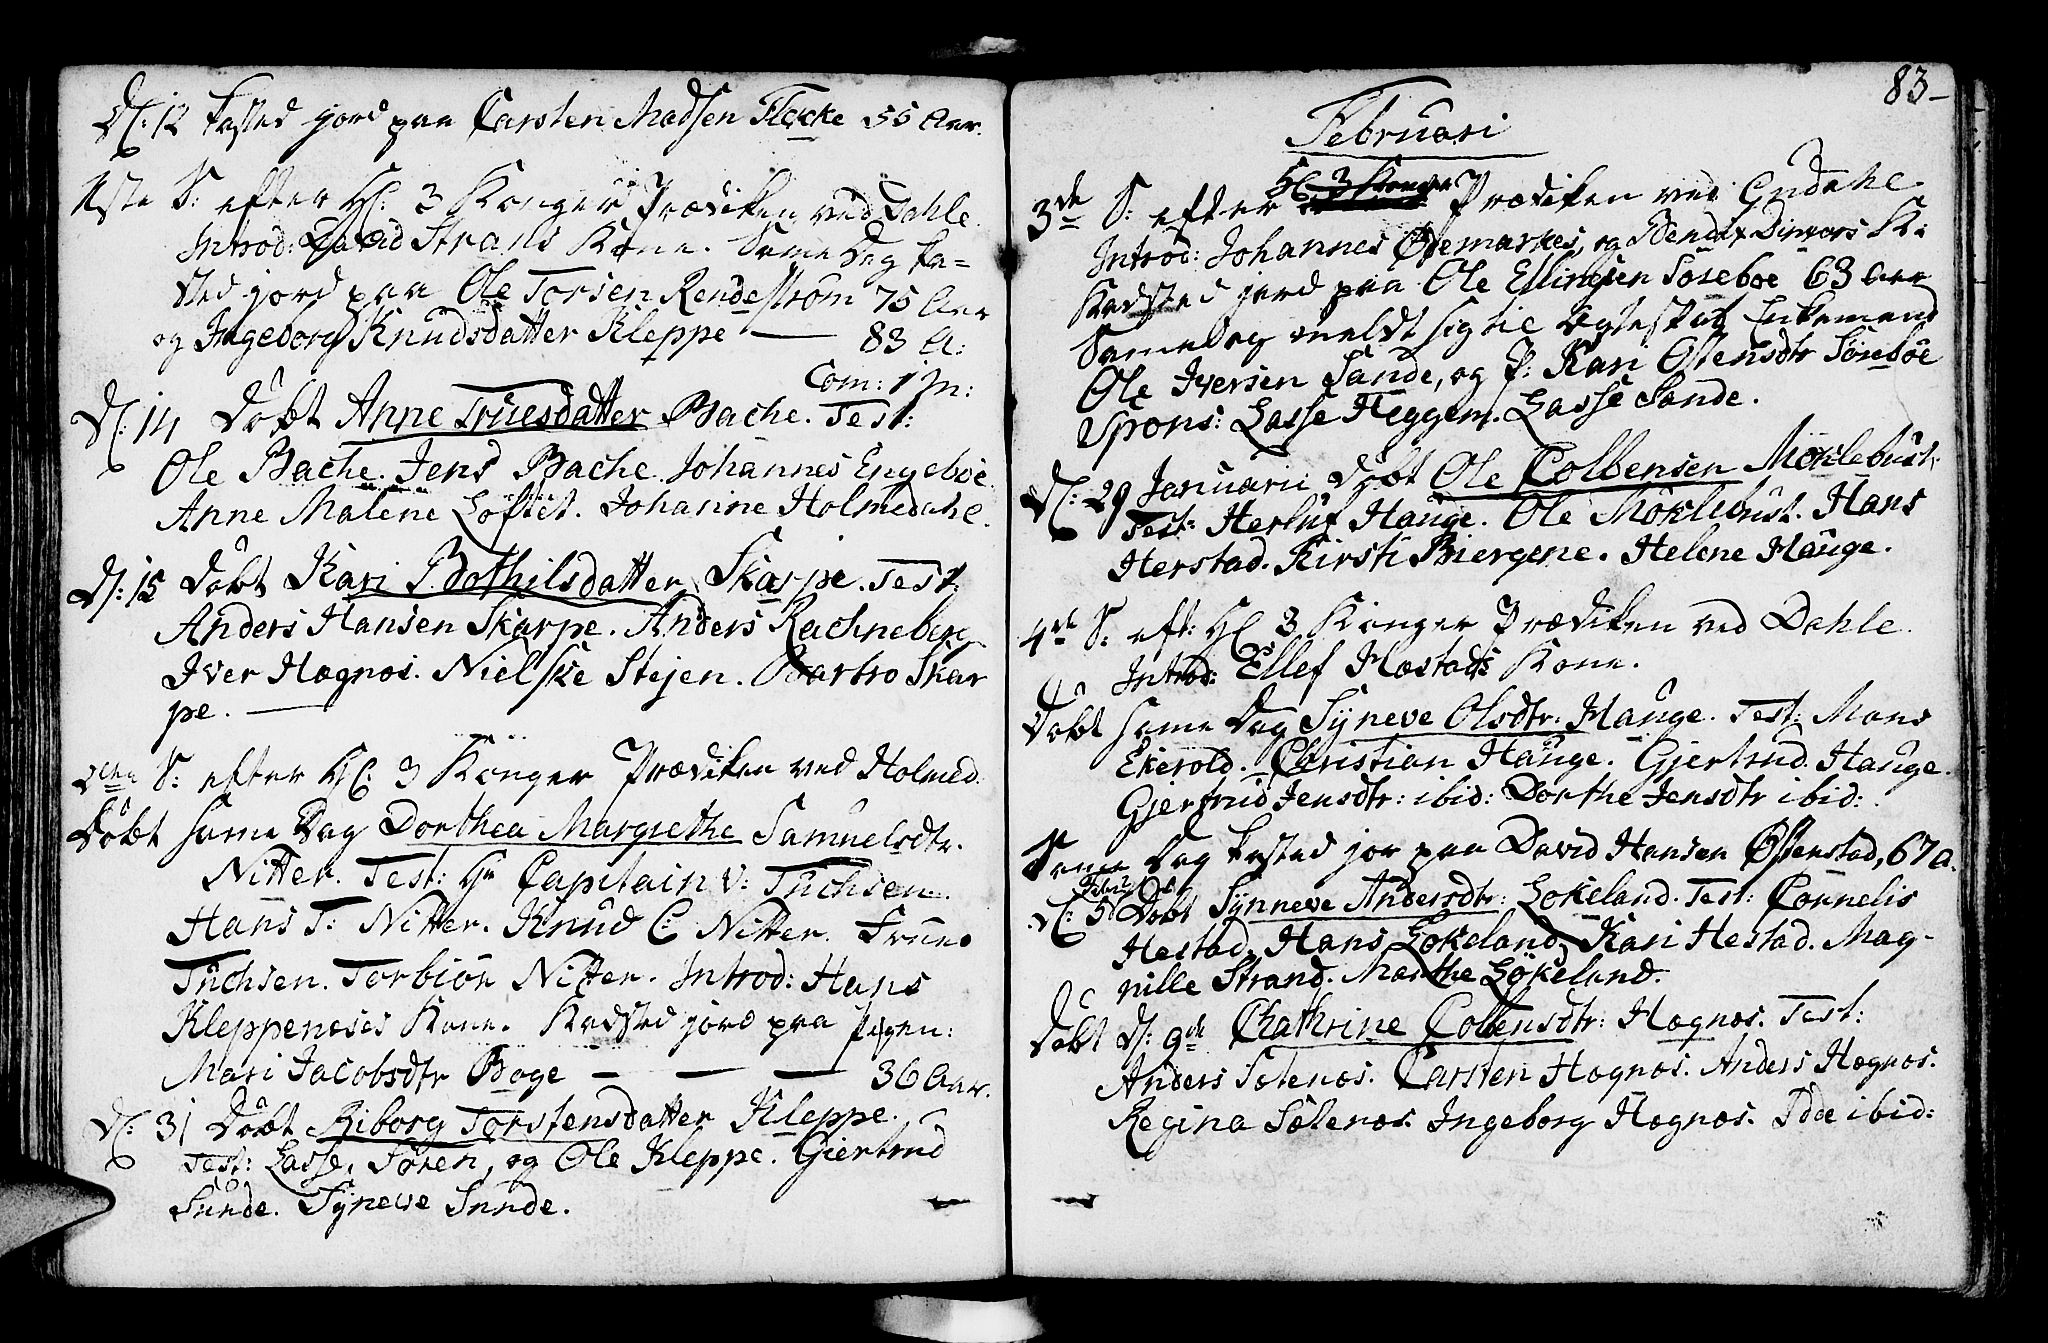 D: 12 Kasted jord paa Carsten Madsen Flecke 55 Aar.
1ste S: efter H: 3 Konger Prædiken ved Dahle.
Introd: David Strans Kone. Same Dag Ka=
sted jord paa Ole Torsen Rendestrøm 75 Aar
og Ingeborg Knudsdatter Kleppe — 83 A:
Com: 1 M:
D: 14 Døbt Anne Truesdatter Bache. Test:
Ole Bache. Jens Bache. Johannes Engeboe.
Anne Malene Løftet. Johanne Holmedahl.
D: 15 Døbt Kari Bothilsdatter Skarpe. Test
Anders Hansen Skarpe. Anders Rachneberg
Iver Hægnæs. Nielske Stejen. Barbro Skar
pe. —
2den S: efter H: 3 Konger Prædiken ved Holmed.
Døbt same Dag Dorthea Margrethe Samuelsdtr.
Nitter. Test: Hr Capitain v: Tuchsen.
Hans T: Nitter. Knud C: Nitter. Frue
Tuchsen. Torbiør Nitter. Introd: Hans
Kleppenæses Kone. Kasted jord paa Pigen:
Mari Jacobsdtr Boge — — — 36 Aar.
D: 31 Døbt Riborg Torstensdatter Kleppe.
Test: Lasse, Søren, og Ole Kleppe. Giertrud
Sunde. Syneve Sunde.
83-
Februari
H: 3 Konger
3de S: efter Prædiken ved Endahl
Introd: Johannes Øremarkes, og Bendix Dinvors K:
Kasted jord paa Ole Ellingsen Søreboe 63 Aar
Same Dag meldt sig til Ægteskab Enkemand
Ole Iversen Sande, og P: Kari Ostensdtr Søreboe
Spons: Lasse Heggem. Lasse Sande.
D: 29 Januarii døbt Ole Colbensen Møklebust.
Test: Herluf Hauge. Ole Møklebust. Hans
Herstad. Kirsti Biergene. Helene Hauge.
4de S: eft: H: 3 Konger Prædiken ved Dahle.
Introd: Ellef Hæstads Kone.
Døbt same Dag Syneve Olsdtr. Hauge. Test: Mons
Ekerold. Christian Hauge. Gjertrud. Hauge.
Gjertrud Jensdtr: ibid: Dorthe Jensdtr ibid:
Same Dag Kasted jor paa David Hansen Østenstad, 67 a.
D: 5 Febr: Døbt Synneve Andersdtr: Løkeland. Test: Cornelis
Hestad. Hans Løkeland. Kari Hestad. Mag-
nille Strand. Marthe Løkeland.
Døbt D: 9de Chathrine Colbensdtr: Hægnæs. Test:
Anders Sælenæs. Carsten Hægnæs. Anders Hægnæs.
Regina Sælenæs. Ingeborg Hægnæs. Idæ ibid: